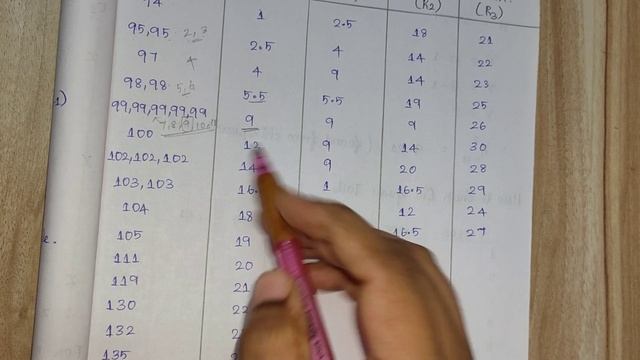 94 1 (R2) (R3)
95,95 2,3 2.5 2.5 18 21
97 4 4 4 14 22
98,98 5,6 5.5 9 14 23
99,99,99,99,99 9 5.5 19 25
100 12 9 9 26
102,102,102 14 9 14 30
103,103 16. 9 20 28
104 18 1 16.5 29
105 19 12 24
111 20 16.5 27
119 21
130
132
135
1)